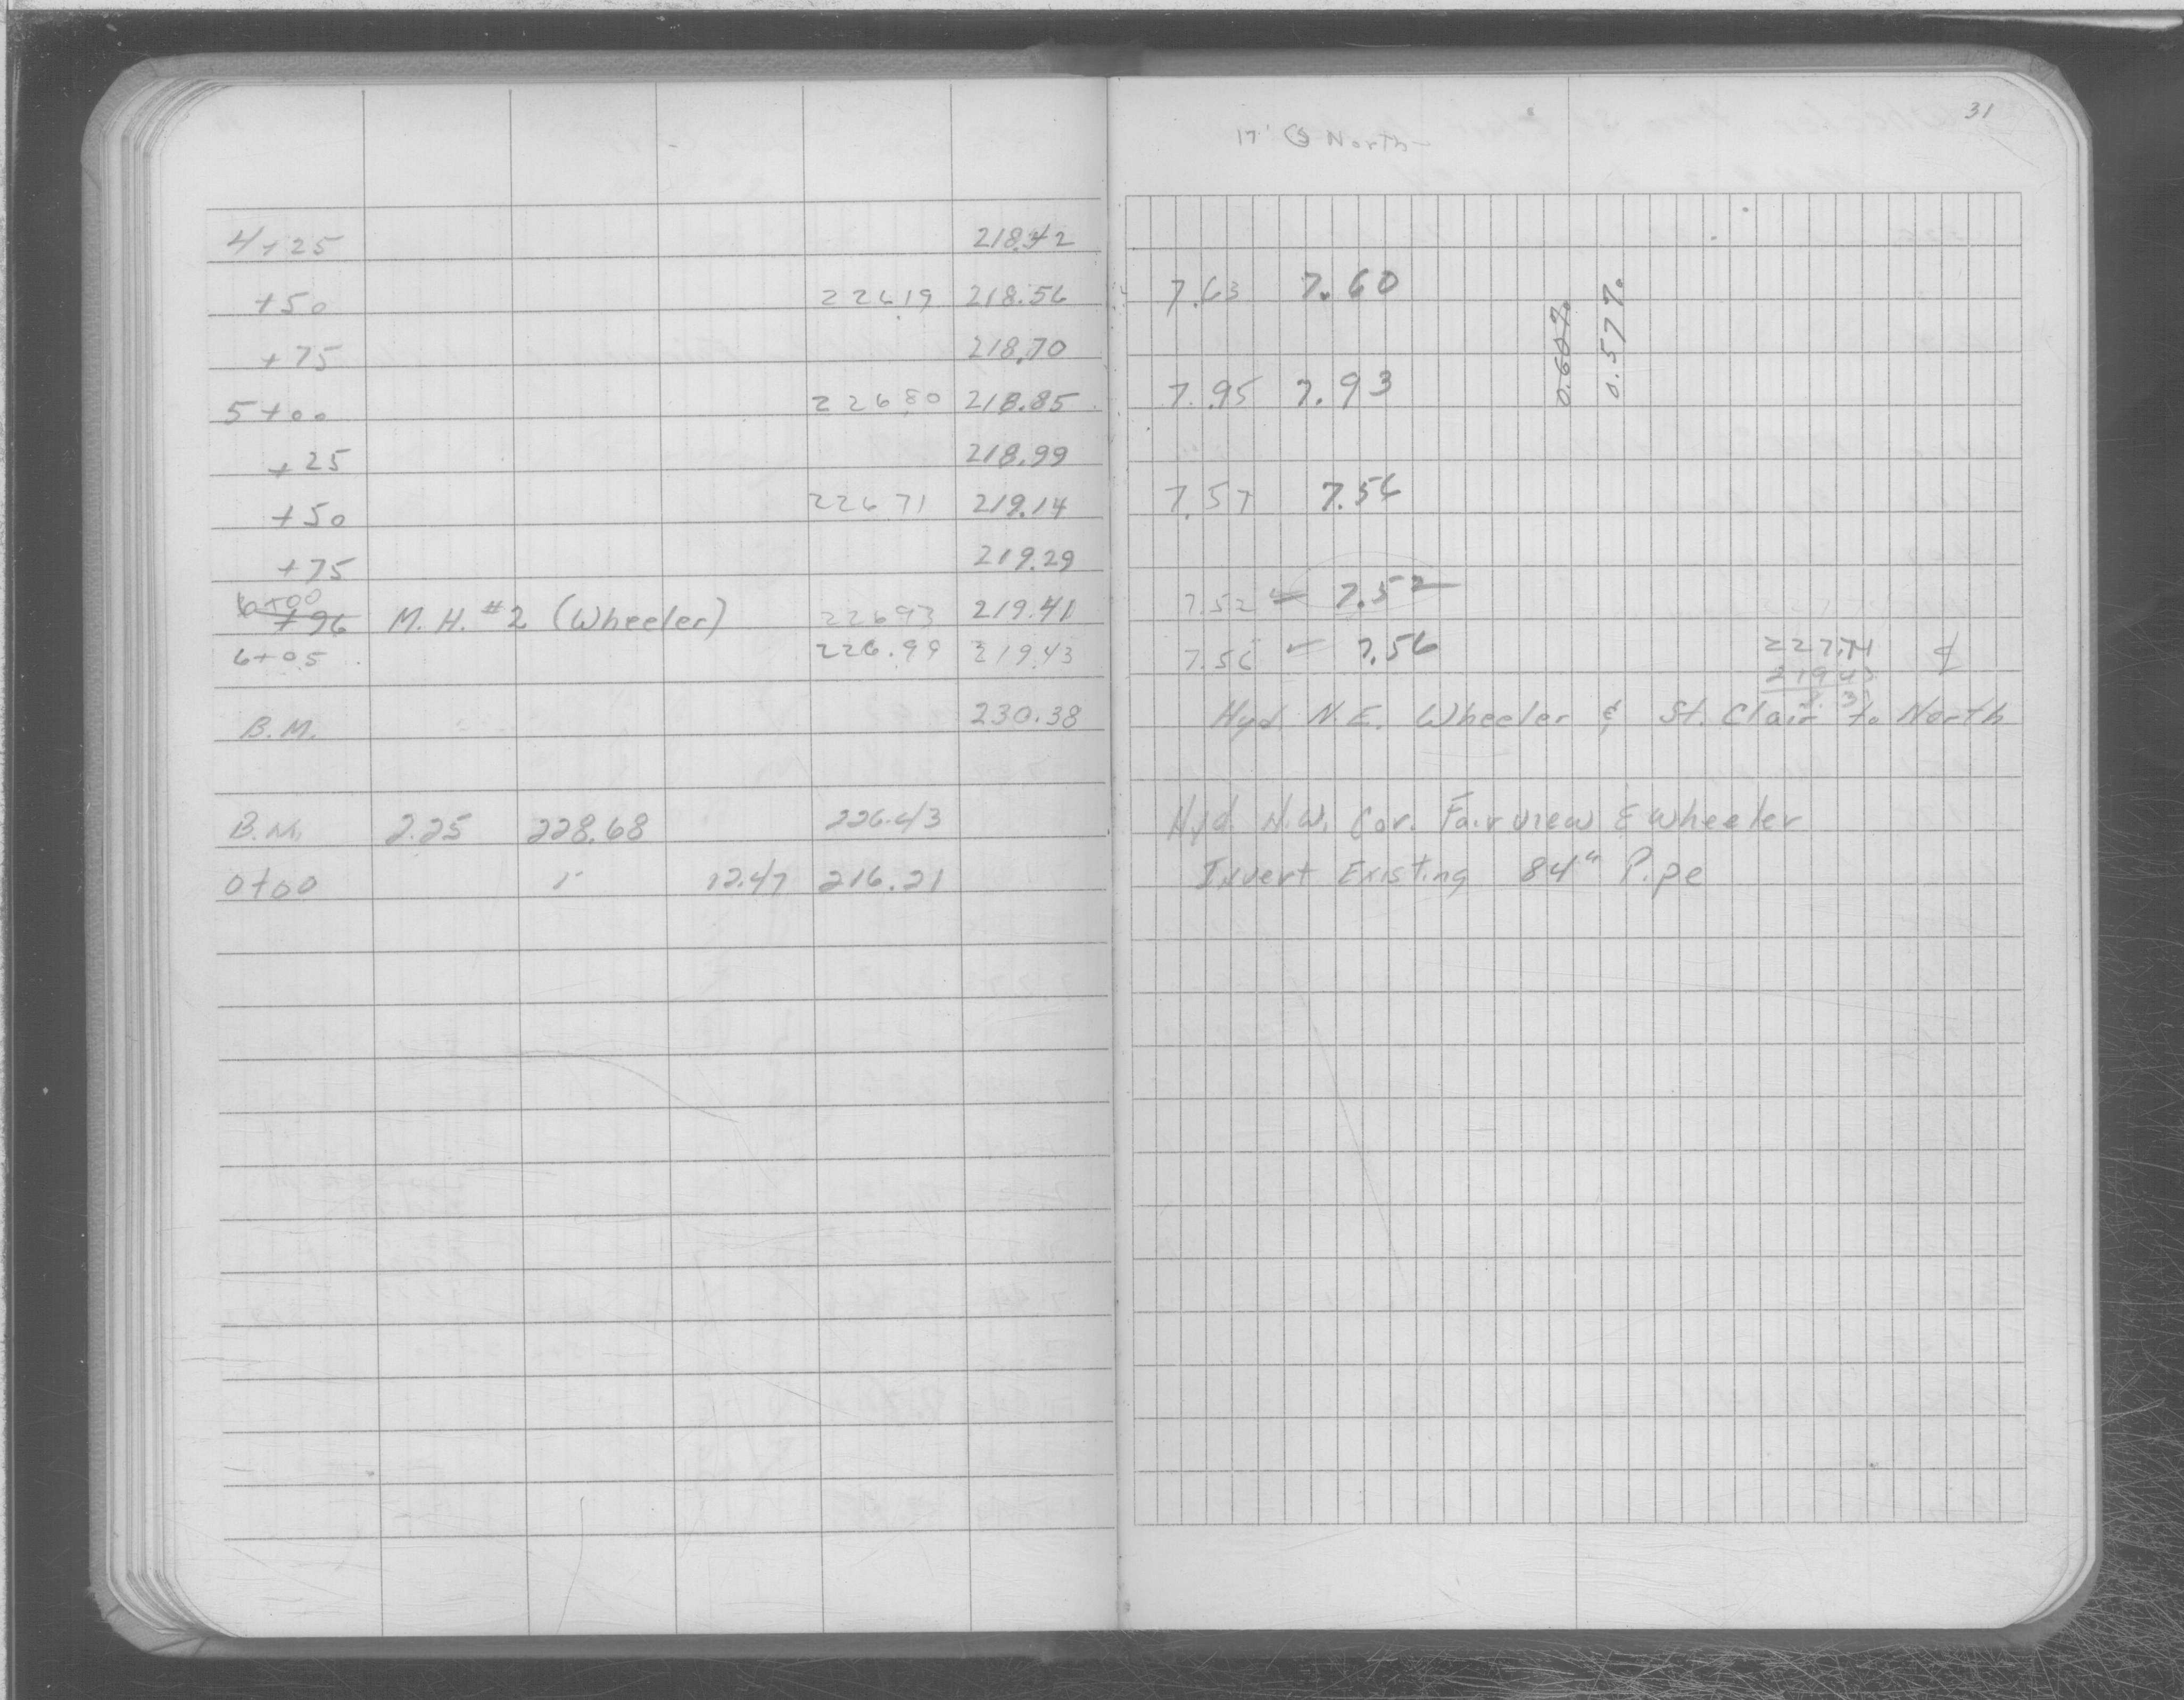 31
17' North
4+25 218.42
+50 226.19 218.56 7.63 7.60
+75 218.70
0.60%
0.57%
5+00 226.80 218.85 7.95 7.93
+25 218.99
+50 226.71 219.14 7.57 7.56
+75 219.29
6+00
+96 M.H. #2 (Wheeler) 226.93 219.41 7.52 7.52
6+05 226.99 219.43 7.56 7.56 227.74 ₵
219.43
B.M. 230.38 Hyd N.E. Wheeler & St. Clair to North
B.M. 2.25 228.68 226.43 Hyd N.W. Cor. Fairview & Wheeler
0+00 12.47 216.21 Invert Existing 84" Pipe